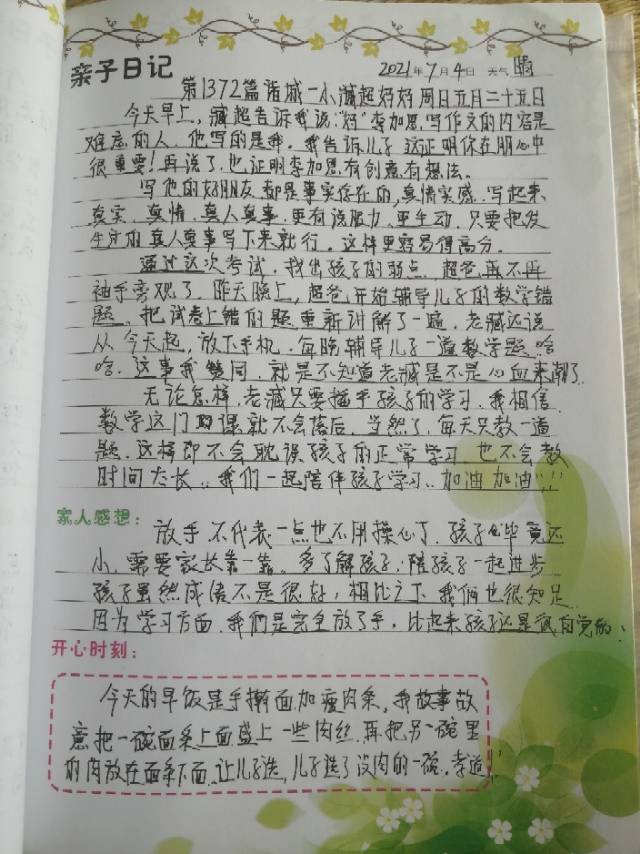 亲子日记
2021年7月4日 天气 晴
第1372篇诸城一小臧超妈妈 周日五月二十五日
今天早上,臧超告诉我说:"妈"李加恩写作文的内容是
难忘的人,他写的是我。我告诉儿子 这证明你在朋心中
很重要!再说了,也证明李加恩有创意有想法。
写他的好朋友都是事实存在的,真情实感,写起来
真实、真情,真人真事.更有说服力,更生动,只要把发
生过的真人真事写下来就行。这样更容易得高分。
通过这次考试,找出孩子的弱点,超爸再不再
袖手旁观了,昨天晚上,超爸开始辅导儿子的数学错
题。把试卷上错的题重新讲解了一遍,老臧还说
从今天起,放下手机,每晚辅导儿子一道数学题哈
哈,这事我赞同,就是不知道老臧是不是心血来潮了.
无论怎样,老臧只要插手孩子的学习,我相信.
数学这门课就不会落后,当然了,每天只教一道
题,这样即不会耽误孩子的正常学习,也不会教
时间太长,我们一起陪伴孩子学习,加油加油!!!
家人感想:
放手不代表一点也不用操心了,孩子毕竟还
小,需要家长靠一靠。多了解孩子,陪孩子一起进步
孩子虽然成绩不是很好,相比之下 我俩也很知足
因为学习方面,我们是完全放了手,比起来孩子还是很自觉的!
开心时刻:
今天的早饭是手擀面加瘦肉条,我故事故
意把一碗面条上面盛上一些肉丝,再把另一碗里
的肉放在面条下面,让儿子选,儿子选了没肉的一碗。孝道!